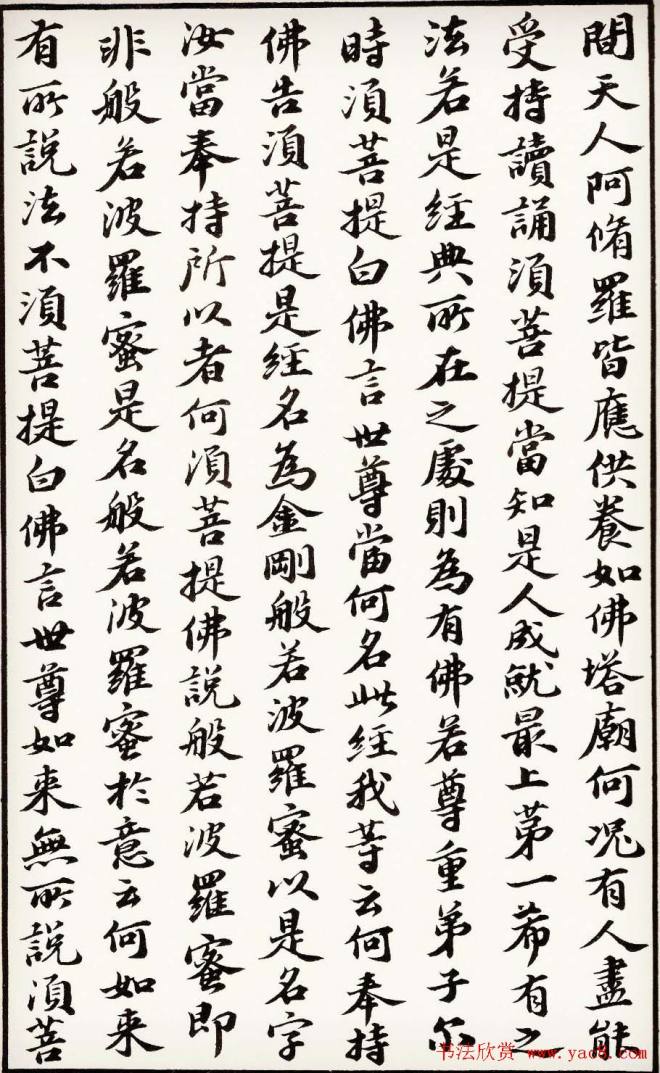 間天人阿脩羅皆應供養如佛塔廟何況有人盡能
受持讀誦須菩提當知是人成就最上第一希有之
法若是經典所在之處則為有佛若尊重弟子尔
時須菩提白佛言世尊當何名此經我等云何奉持
佛告須菩提是經名為金剛般若波羅蜜以是名字
汝當奉持所以者何須菩提佛說般若波羅蜜即
非般若波羅蜜是名般若波羅蜜於意云何如来
有所說法不須菩提白佛言世尊如来無所說須菩
书法欣赏 www.yac8.com